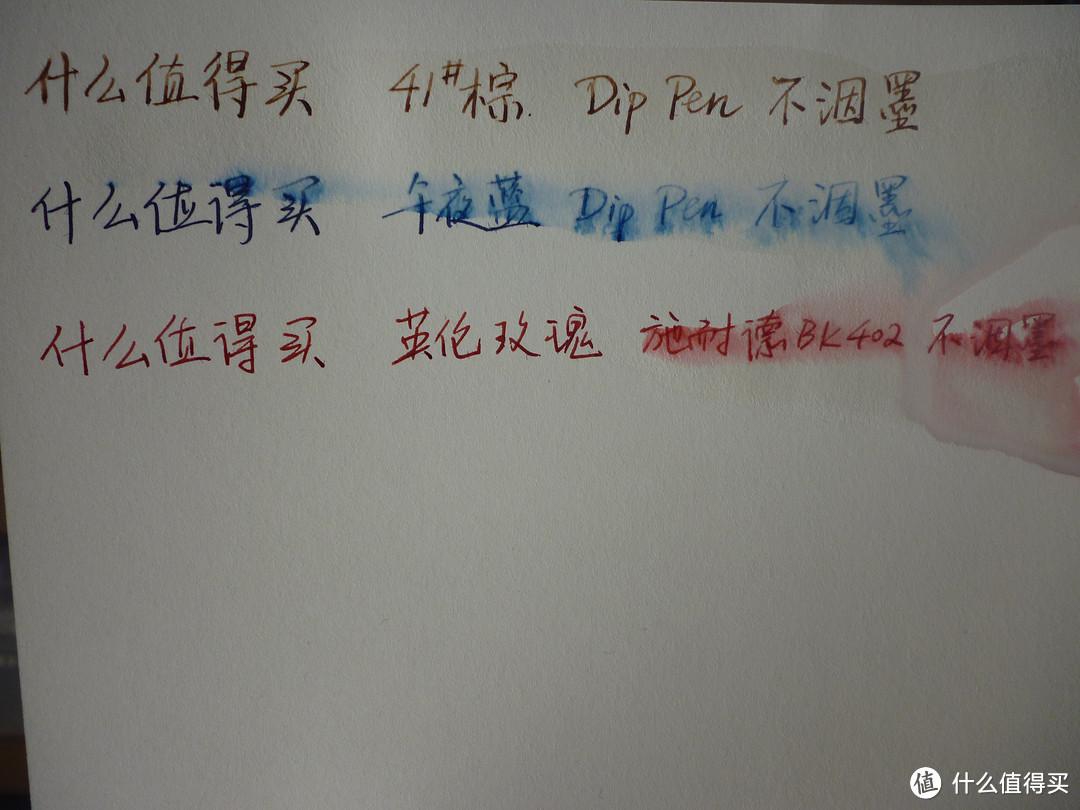 什么值得买 41#棕. Dip Pen 不洇墨
什么值得买 午夜蓝 Dip Pen 不洇墨
什么值得买 英伦玫瑰 施耐德BK402 不洇墨
值 什么值得买